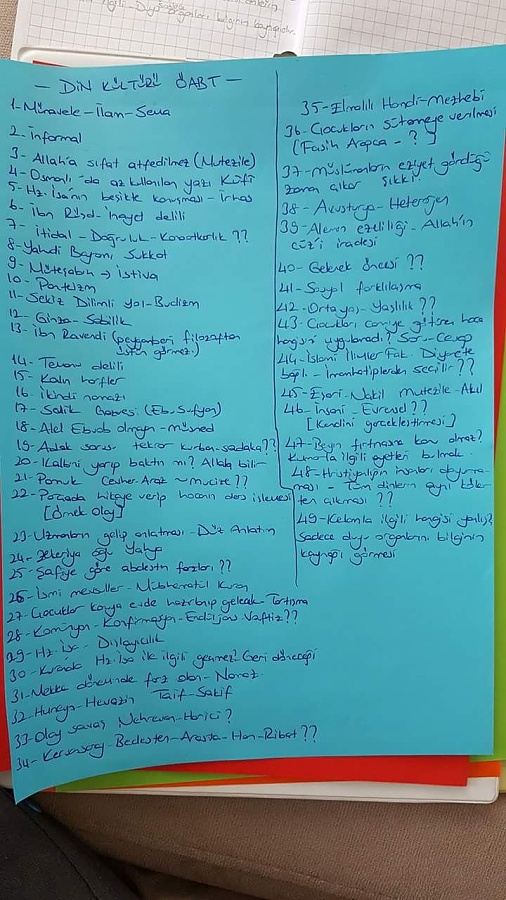 duyu organları bilginin kaynağıdır.
— DİN KÜLTÜRÜ ÖABT —
1-Münavele-İlam-Sema
2- İnformal
3- Allah'a sıfat atfedilmez (Mutezile)
4- Osmanlı'da az kullanılan yazı Kufi
5- Hz. İsa'nın beşikte konuşması - İrhas
6- İbn Rüşd-İnayet delili
7- İtidal - Doğruluk - Kanaatkarlık ??
8-Yahudi Bayramı Sukkot
9- Müteşabih → İstiva
10- Panteizm
11- Sekiz Dilimli yol-Budizm
12- Ginza-Sabiilik
13- İbn Ravendi (peygamberi filozoftan
üstün görmez.)
14- Temanu delili
15- Kalın harfler
16- İkindi namazı
17- Sevik Gazvesi (Eb. Sufyan)
18- Alel Ebvab olmayan-müsned
19- Adak sorusu tekrar kurban-sadaka??
20- Kalbini yarıp baktın mı? Allah bilir
21- Pamuk Cevher-Araz ~ Mucize ??
22- Parçada hikaye verip hocanın ders işlemesi
[Örnek Olay]
23- Uzmanların gelip anlatması - Düz Anlatım
24- Zekeriya oğlu Yahya
25- Şafiye göre abdestin farzları ??
26- İsmi mevsuller - Mübhematül Kuran
27- Çocuklar konuya evde hazırlanıp gelecek- Tartışma
28- Komünyon - Konfirmasyon - Endüljans-Vaftiz??
29- Hz. İsa - Dışlayıcılık
30- Kuranda Hz. İsa ile ilgili geçmez? Geri döneceği
31- Mekke döneminde farz olan - Namaz
32- Huneyn- Hevazin Taif-Sakif
33- Olay savaş Nehrevan-Harici ?
34- Kervansaray- Bedesten- Arasta- Han-Ribat ??
35- Elmalılı Hamdi-Mezhebi
36- Çocukların sütanneye verilmesi
(Fasih Arapça - ?]
37- Müslümanların eziyet gördüğü
zaman çıkar şıkkı
38 - Avusturya- Heterojen
39- Alemin ezeliliği - Allah'ın
cüz'i iradesi
40- Gelenek öncesi ??
41- Sosyal farklılaşma
42- Ortayaş - Yaşlılık ??
43- Çocukları camiye götüren hoca
hangisini uygulamadı? Soru-Cevap
44- İslami İlimler Fak. Diyanete
bağlı - İmamhatiplerden seçilir ??
45- Eşari- Nakil Mutezile-Akıl
46- İnsani - Evrensel ??
[Kendini gerçekleştirmesi]
47- Beyin fırtınasına konu olmaz?
Kumarla ilgili ayetleri bulmak.
48- Hristiyanlığın insanları doyurma-
ması - Tüm dinlerin aynı kök-
ten çıkması ??
49- Kelamla ilgili hangisi yanlış?
Sadece duyu organlarını bilginin
kaynağı görmesi